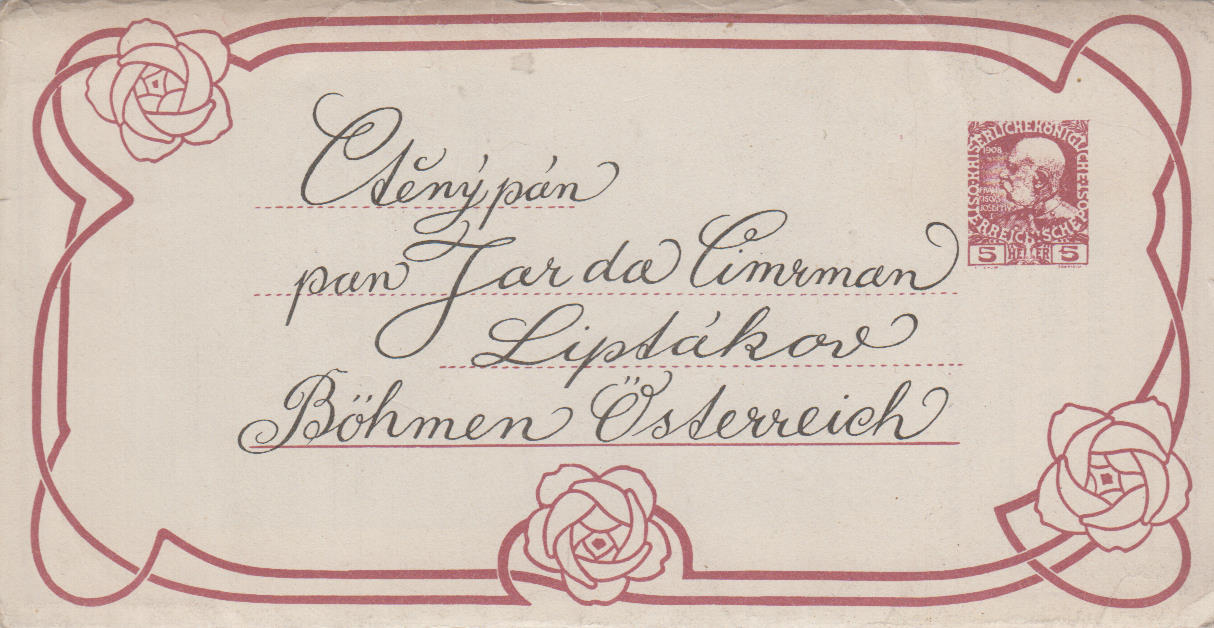 Ctěný pán
pan Jarda Cimrman
Liptákov
Böhmen Österreich
KAISERLICHE KÖNIGLICHE ÖSTERREICHISCHE POST
1908
FRAN
CISCVS
IOSEPHVS
I
5 HELLER 5